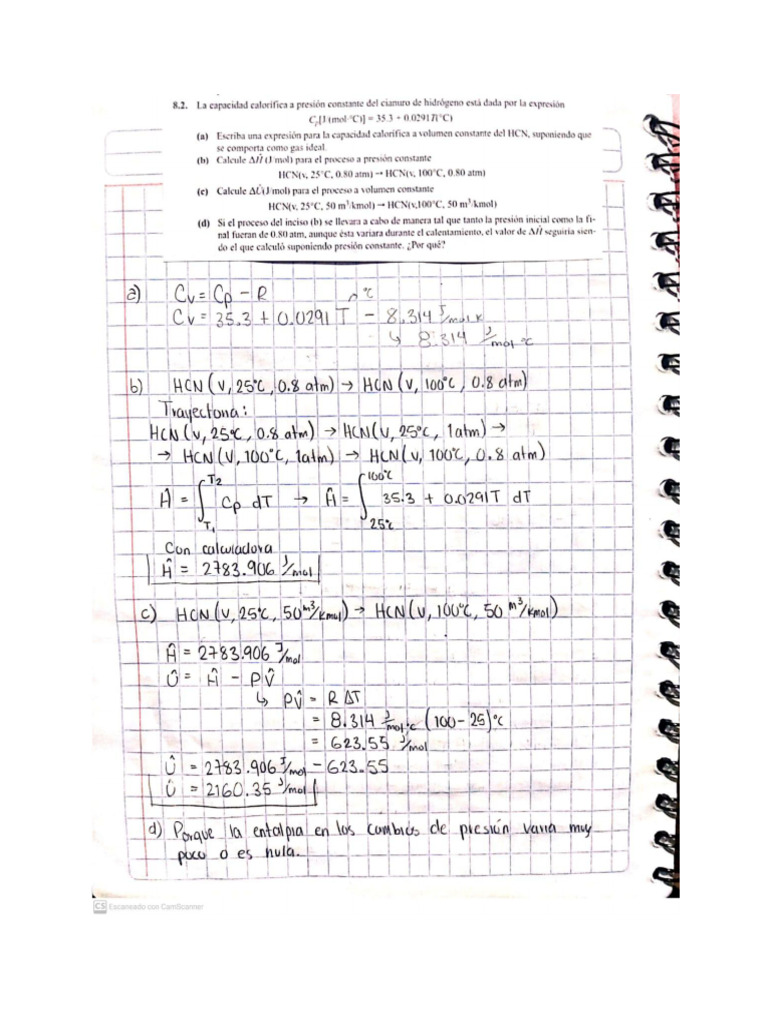 8.2. La capacidad calorífica a presión constante del cianuro de hidrógeno está dada por la expresión
Cp[J/(mol·°C)] = 35.3 + 0.0291T(°C)
(a) Escriba una expresión para la capacidad calorífica a volumen constante del HCN, suponiendo que
se comporta como gas ideal.
(b) Calcule ΔĤ (J/mol) para el proceso a presión constante
HCN(v, 25°C, 0.80 atm) → HCN(v, 100°C, 0.80 atm)
(c) Calcule ΔÛ(J/mol) para el proceso a volumen constante
HCN(v, 25°C, 50 m³/kmol) → HCN(v,100°C, 50 m³/kmol)
(d) Si el proceso del inciso (b) se llevara a cabo de manera tal que tanto la presión inicial como la fi-
nal fueran de 0.80 atm, aunque ésta variara durante el calentamiento, el valor de ΔĤ seguiría sien-
do el que calculó suponiendo presión constante. ¿Por qué?
a) Cv = Cp − R
°C
Cv = 35.3 + 0.0291 T − 8.314 J/mol K
↳ 8.314 J/mol °C
b) HCN (v, 25°C, 0.8 atm) → HCN (v, 100°C, 0.8 atm)
Trayectoria:
HCN (v, 25°C, 0.8 atm) → HCN (v, 25°C, 1atm) →
→ HCN (v, 100°C, 1atm) → HCN (v, 100°C, 0.8 atm)
Ĥ = ∫T₁T2 Cp dT → Ĥ = ∫25°C100°C 35.3 + 0.0291T dT
Con calculadora
Ĥ = 2783.906 J/mol
c) HCN (v, 25°C, 50 m³/kmol) → HCN (v, 100°C, 50 m³/kmol)
Ĥ = 2783.906 J/mol
Û = Ĥ − PV̂
↳ PV̂ = R ΔT
= 8.314 J/mol°C (100 − 25)°C
= 623.55 J/mol
Û = 2783.906 J/mol − 623.55
Û = 2160.35 J/mol
d) Porque la entalpia en los cambios de presión varia muy
poco o es nula.
CS Escaneado con CamScanner